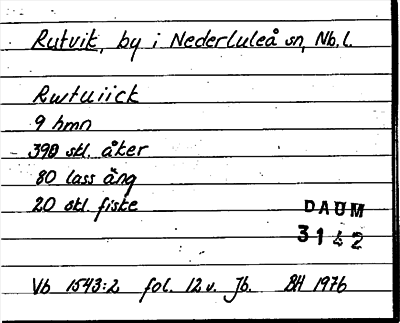 Rutvik, by i Nederluleå sn, Nb.l.
Rwtuiick
9 hmn
390 skl. åker
80 lass äng
20 skl fiske
DAUM
3142
Vb 1543:2 fol. 12 v. Jb. BH 1976